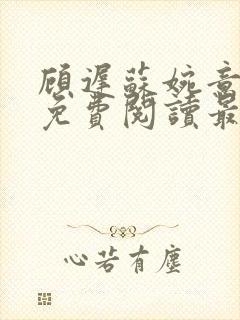 顾遲蘇婉音
免費閱讀最
心若有塵